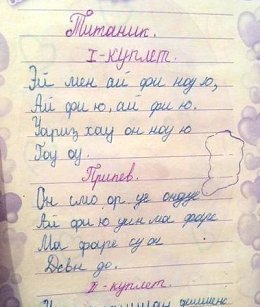 Титаник.
I-куплет.
Эй мен ай фи ноу ю,
Ай фи ю, ай фи ю.
Уариз хау он ноу ю
Гоу оу.
Припев.
Он смо ор уе
Ай фи ю уин ма фаре
Ма фаре су он
Дєвн до.
II-куплет.